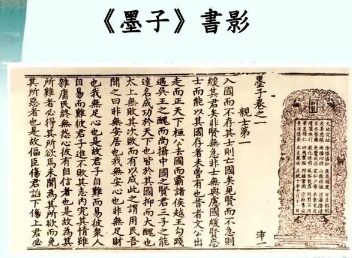 《墨子》書影
墨子卷之一
親士第一
入國而不存其士則亡國矣見賢而不急則
緩其君矣非賢無急非士無與慮國緩賢忘
士而能以其國存者未曾有也昔者文公出
走而正天下桓公去國而霸諸侯越王勾踐
遇吳王之醜而尚攝中國之賢君三子之能
達名成功於天下也皆於其國抑而大醜也
太上無敗其次敗而有以成此之謂用民吾
聞之曰非無安居也我無安心也非無足財
也我無足心也是故君子自難而易彼衆人
自易而難彼君子進不敗其志內究其情雖
雜庸民終無怨心彼有自信者也是故為其
所難者必得其所欲焉未聞為其所欲而免
其所惡者也是故偪臣傷君諂下傷上君必